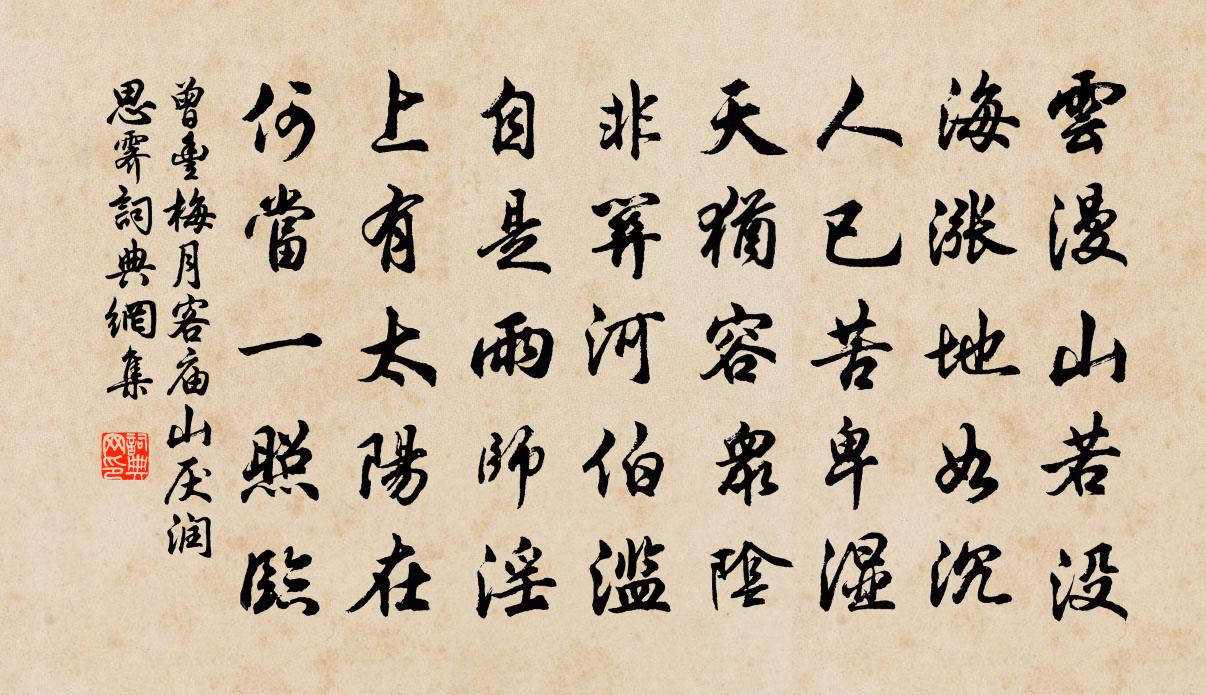 雲漫山若没
海漲地如沉
人已苦卑濕
天猶容衆陰
非關河伯濫
自是雨師淫
上有太陽在
何當一照臨
曾豐梅月客庙山厌润
思霽詞典網集
詞典網印